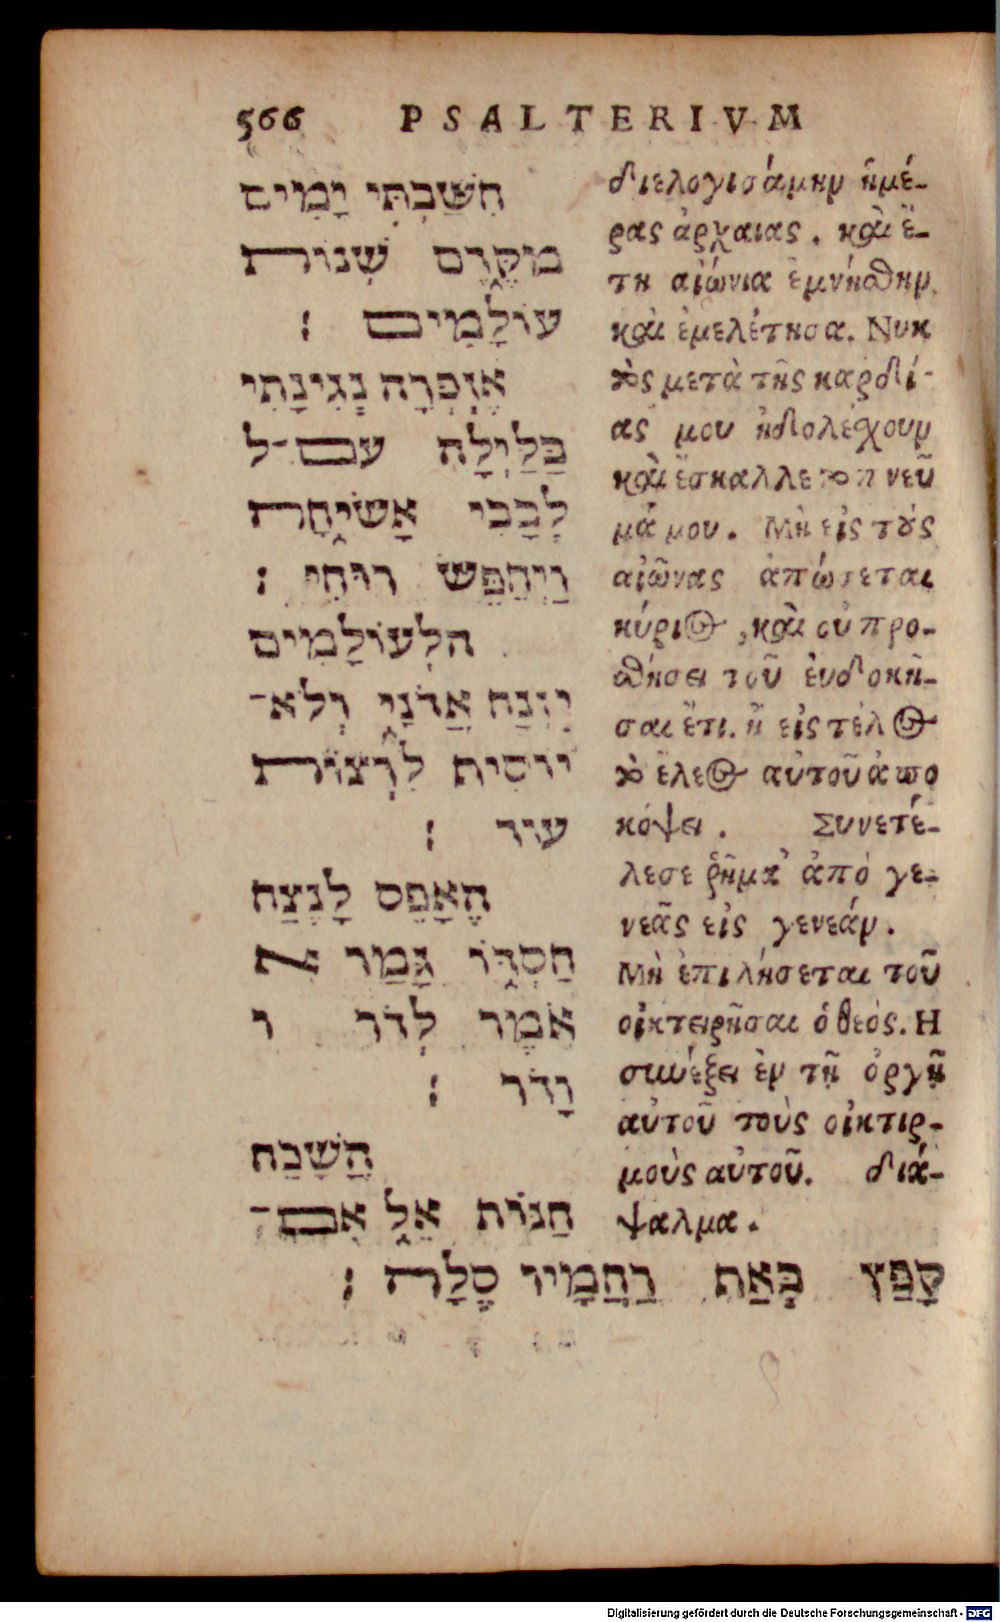 566 PSALTERIVM
חִשַּׁבְתִּי יָמִים
מִקֶּדֶם שְׁנוֹת
עוֹלָמִים ׃
אֶזְכְּרָה נְגִינָתִי
בַּלַּיְלָה עִם־ל
לְבָבִי אָשִׂיחָה
וַיְחַפֵּשׂ רוּחִי ׃
הַלְעוֹלָמִים
יִזְנַח אֲדֹנָי וְלֹא־
יוֹסִיף לִרְצוֹת
עוֹד ׃
הֶאָפֵס לָנֶצַח
חַסְדּוֹ גָּמַר א
אֹמֶר לְדֹר ו
וָדֹר ׃
הֲשָׁכַח
חַנּוֹת אֵל אִם־
קָפַץ בְּאַף רַחֲמָיו סֶלָה ׃
διελογισάμην ἡμέ-
ρας ἀρχαιας. καὶ ἔ-
τη αἰώνια ἐμνήσθην
καὶ ἐμελέτησα. Νυκ
τὸς μετὰ τῆς καρδί-
ας μου ἠδολέχουν
καὶ ἔσκαλλε τὸ πνεῦ
μά μου. Μὴ εἰς τοὺς
αἰῶνας ἀπώσεται
κύριος, καὶ οὐ προ-
θήσει τοῦ ἐυδοκῆ-
σαι ἔτι. ἢ εἰς τέλος
τὸ ἔλεος αὐτοῦ ἀπο
κόψει. Συνετέ-
λεσε ῥῆμα ἀπό γε-
νεᾶς εἰς γενεάν.
Μὴ ἐπιλήσεται τοῦ
οἰκτειρῆσαι ὁ θεός. Η
συνέξει ἐν τῇ ὀργῇ
αὐτοῦ τοὺς οἰκτιρ-
μοὺς αὐτοῦ. διά-
ψαλμα.
Digitalisierung gefördert durch die Deutsche Forschungsgemeinschaft - DFG